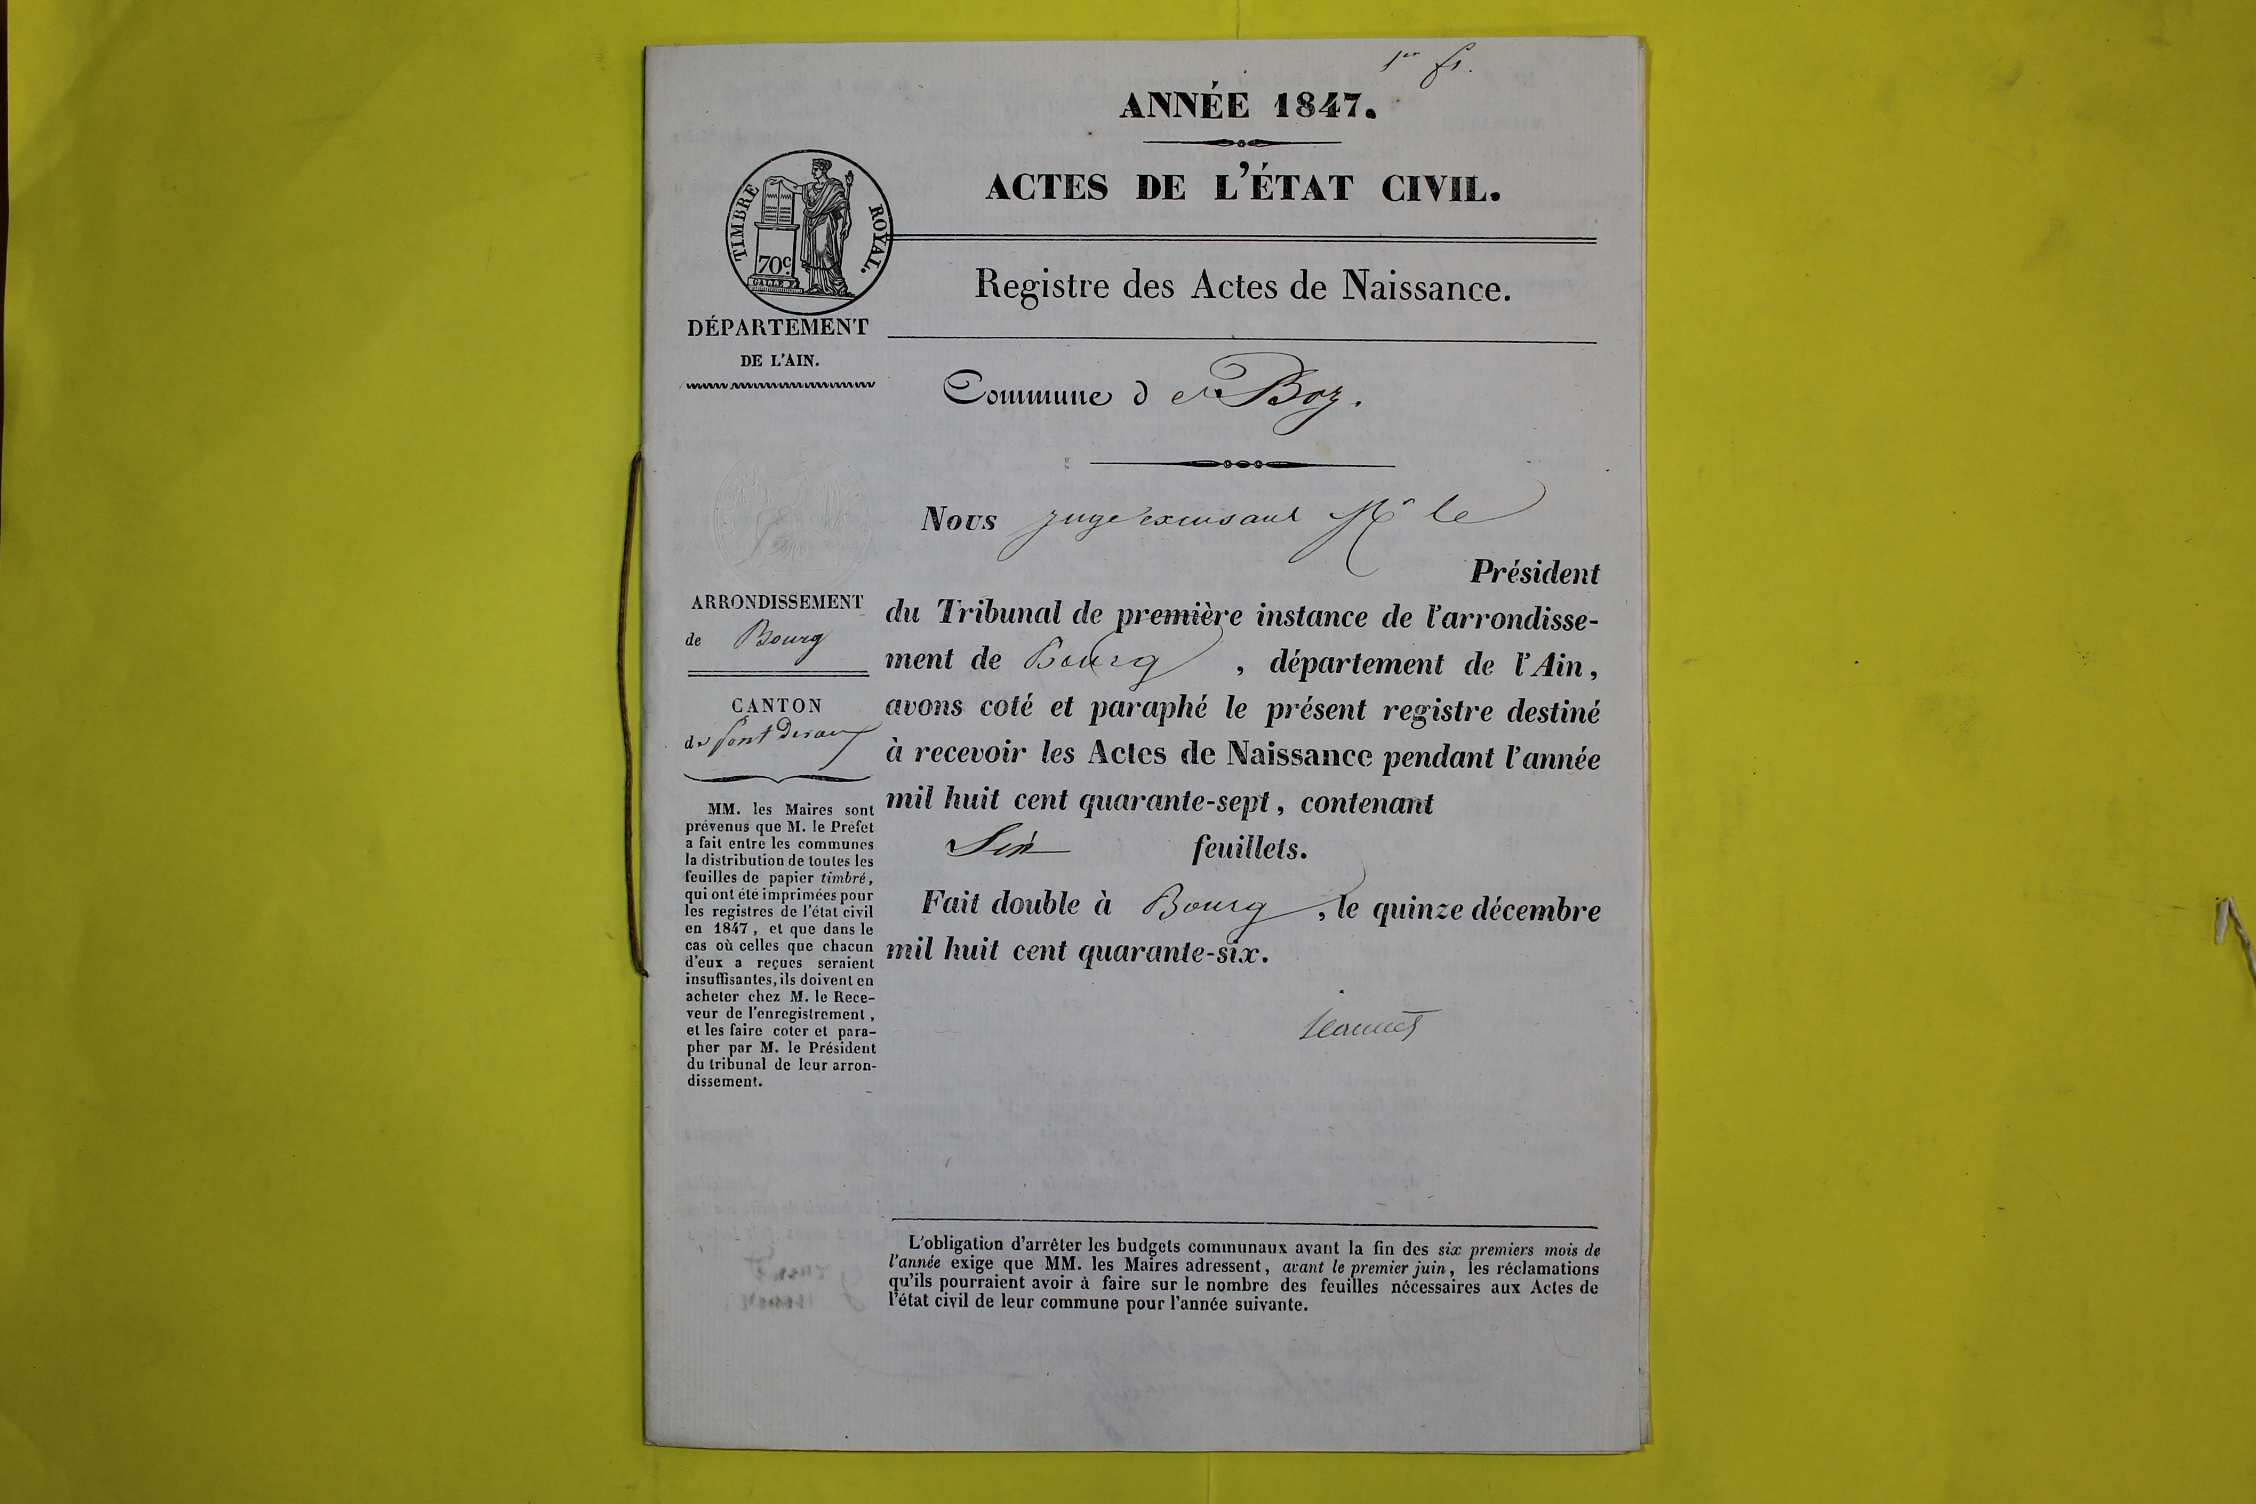 1er f.
ANNÉE 1847.
ACTES DE L'ÉTAT CIVIL.
TIMBRE ROYAL.
70c.
Registre des Actes de Naissance.
DÉPARTEMENT
DE L'AIN.
Commune de Boz.
Nous juge excusant Mr le
Président
du Tribunal de première instance de l'arrondisse-
ment de Bourg, département de l'Ain,
avons coté et paraphé le présent registre destiné
à recevoir les Actes de Naissance pendant l'année
mil huit cent quarante-sept, contenant
Six feuillets.
Fait double à Bourg, le quinze décembre
mil huit cent quarante-six.
ARRONDISSEMENT
de Bourg
CANTON
de Pont de vaux
MM. les Maires sont
prévenus que M. le Préfet
a fait entre les communes
la distribution de toutes les
feuilles de papier timbré,
qui ont été imprimées pour
les registres de l'état civil
en 1847, et que dans le
cas où celles que chacun
d'eux a reçues seraient
insuffisantes, ils doivent en
acheter chez M. le Rece-
veur de l'enregistrement,
et les faire coter et para-
pher par M. le Président
du tribunal de leur arron-
dissement.
L'obligation d'arrêter les budgets communaux avant la fin des six premiers mois de
l'année exige que MM. les Maires adressent, avant le premier juin, les réclamations
qu'ils pourraient avoir à faire sur le nombre des feuilles nécessaires aux Actes de
l'état civil de leur commune pour l'année suivante.